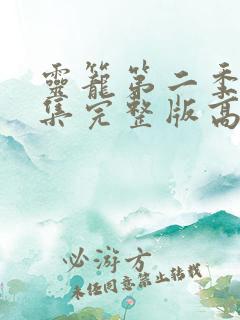 靈籠第二季
集完整版高
必游方
未经同意禁止转载